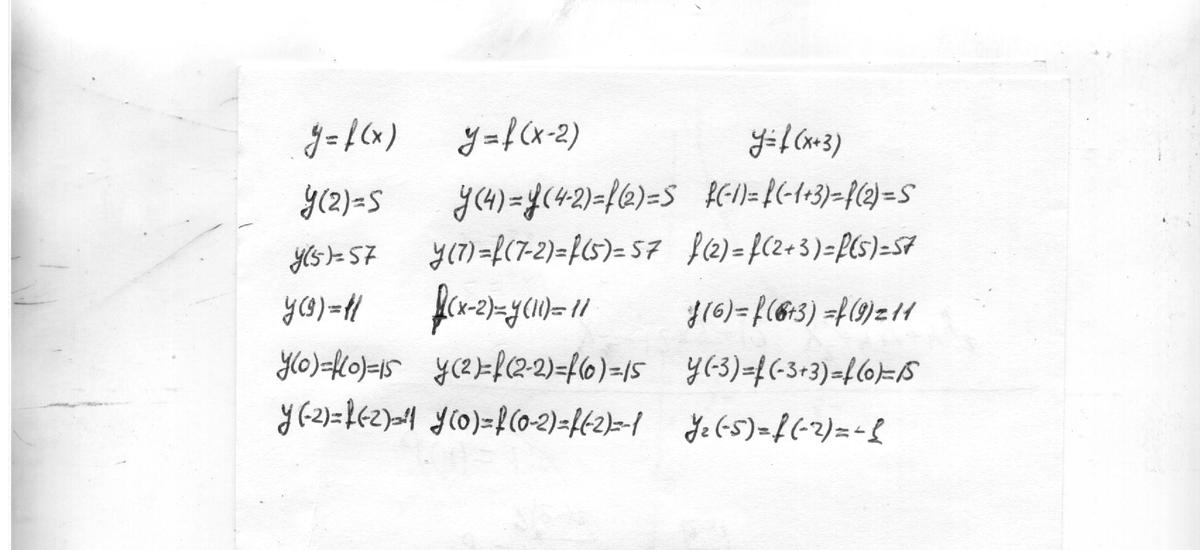 y=f(x) y=f(x-2) y=f(x+3)
y(2)=5 y(4)=y(4-2)=f(2)=5 f(-1)=f(-1+3)=f(2)=5
y(5)=57 y(7)=f(7-2)=f(5)=57 f(2)=f(2+3)=f(5)=57
y(9)=11 f(x-2)=y(11)=11 y(6)=f(6+3)=f(9)=11
y(0)=f(0)=15 y(2)=f(2-2)=f(0)=15 y(-3)=f(-3+3)=f(0)=15
y(-2)=f(-2)=-1 y(0)=f(0-2)=f(-2)=-1 y₂(-5)=f(-2)=-1